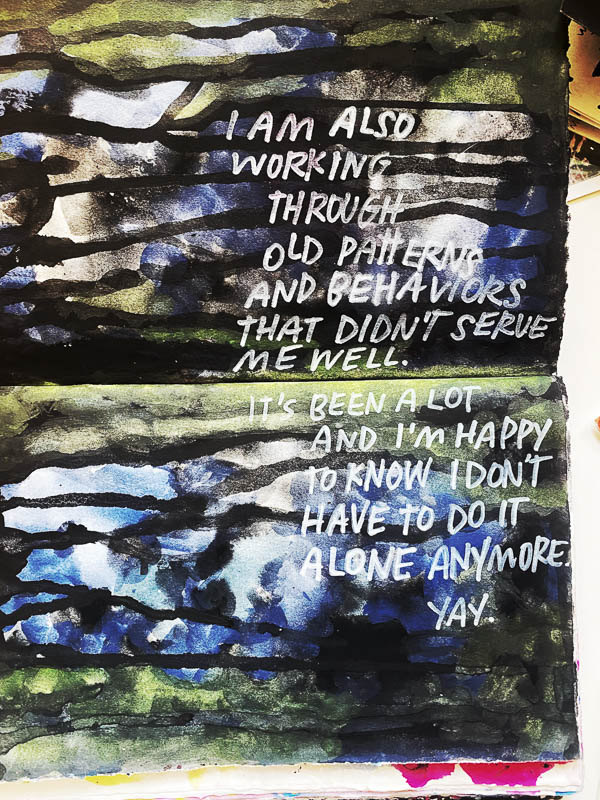 I AM ALSO
WORKING
THROUGH
OLD PATTERNS
AND BEHAVIORS
THAT DIDN'T SERVE
ME WELL.
IT'S BEEN A LOT
AND I'M HAPPY
TO KNOW I DON'T
HAVE TO DO IT
ALONE ANYMORE.
YAY.